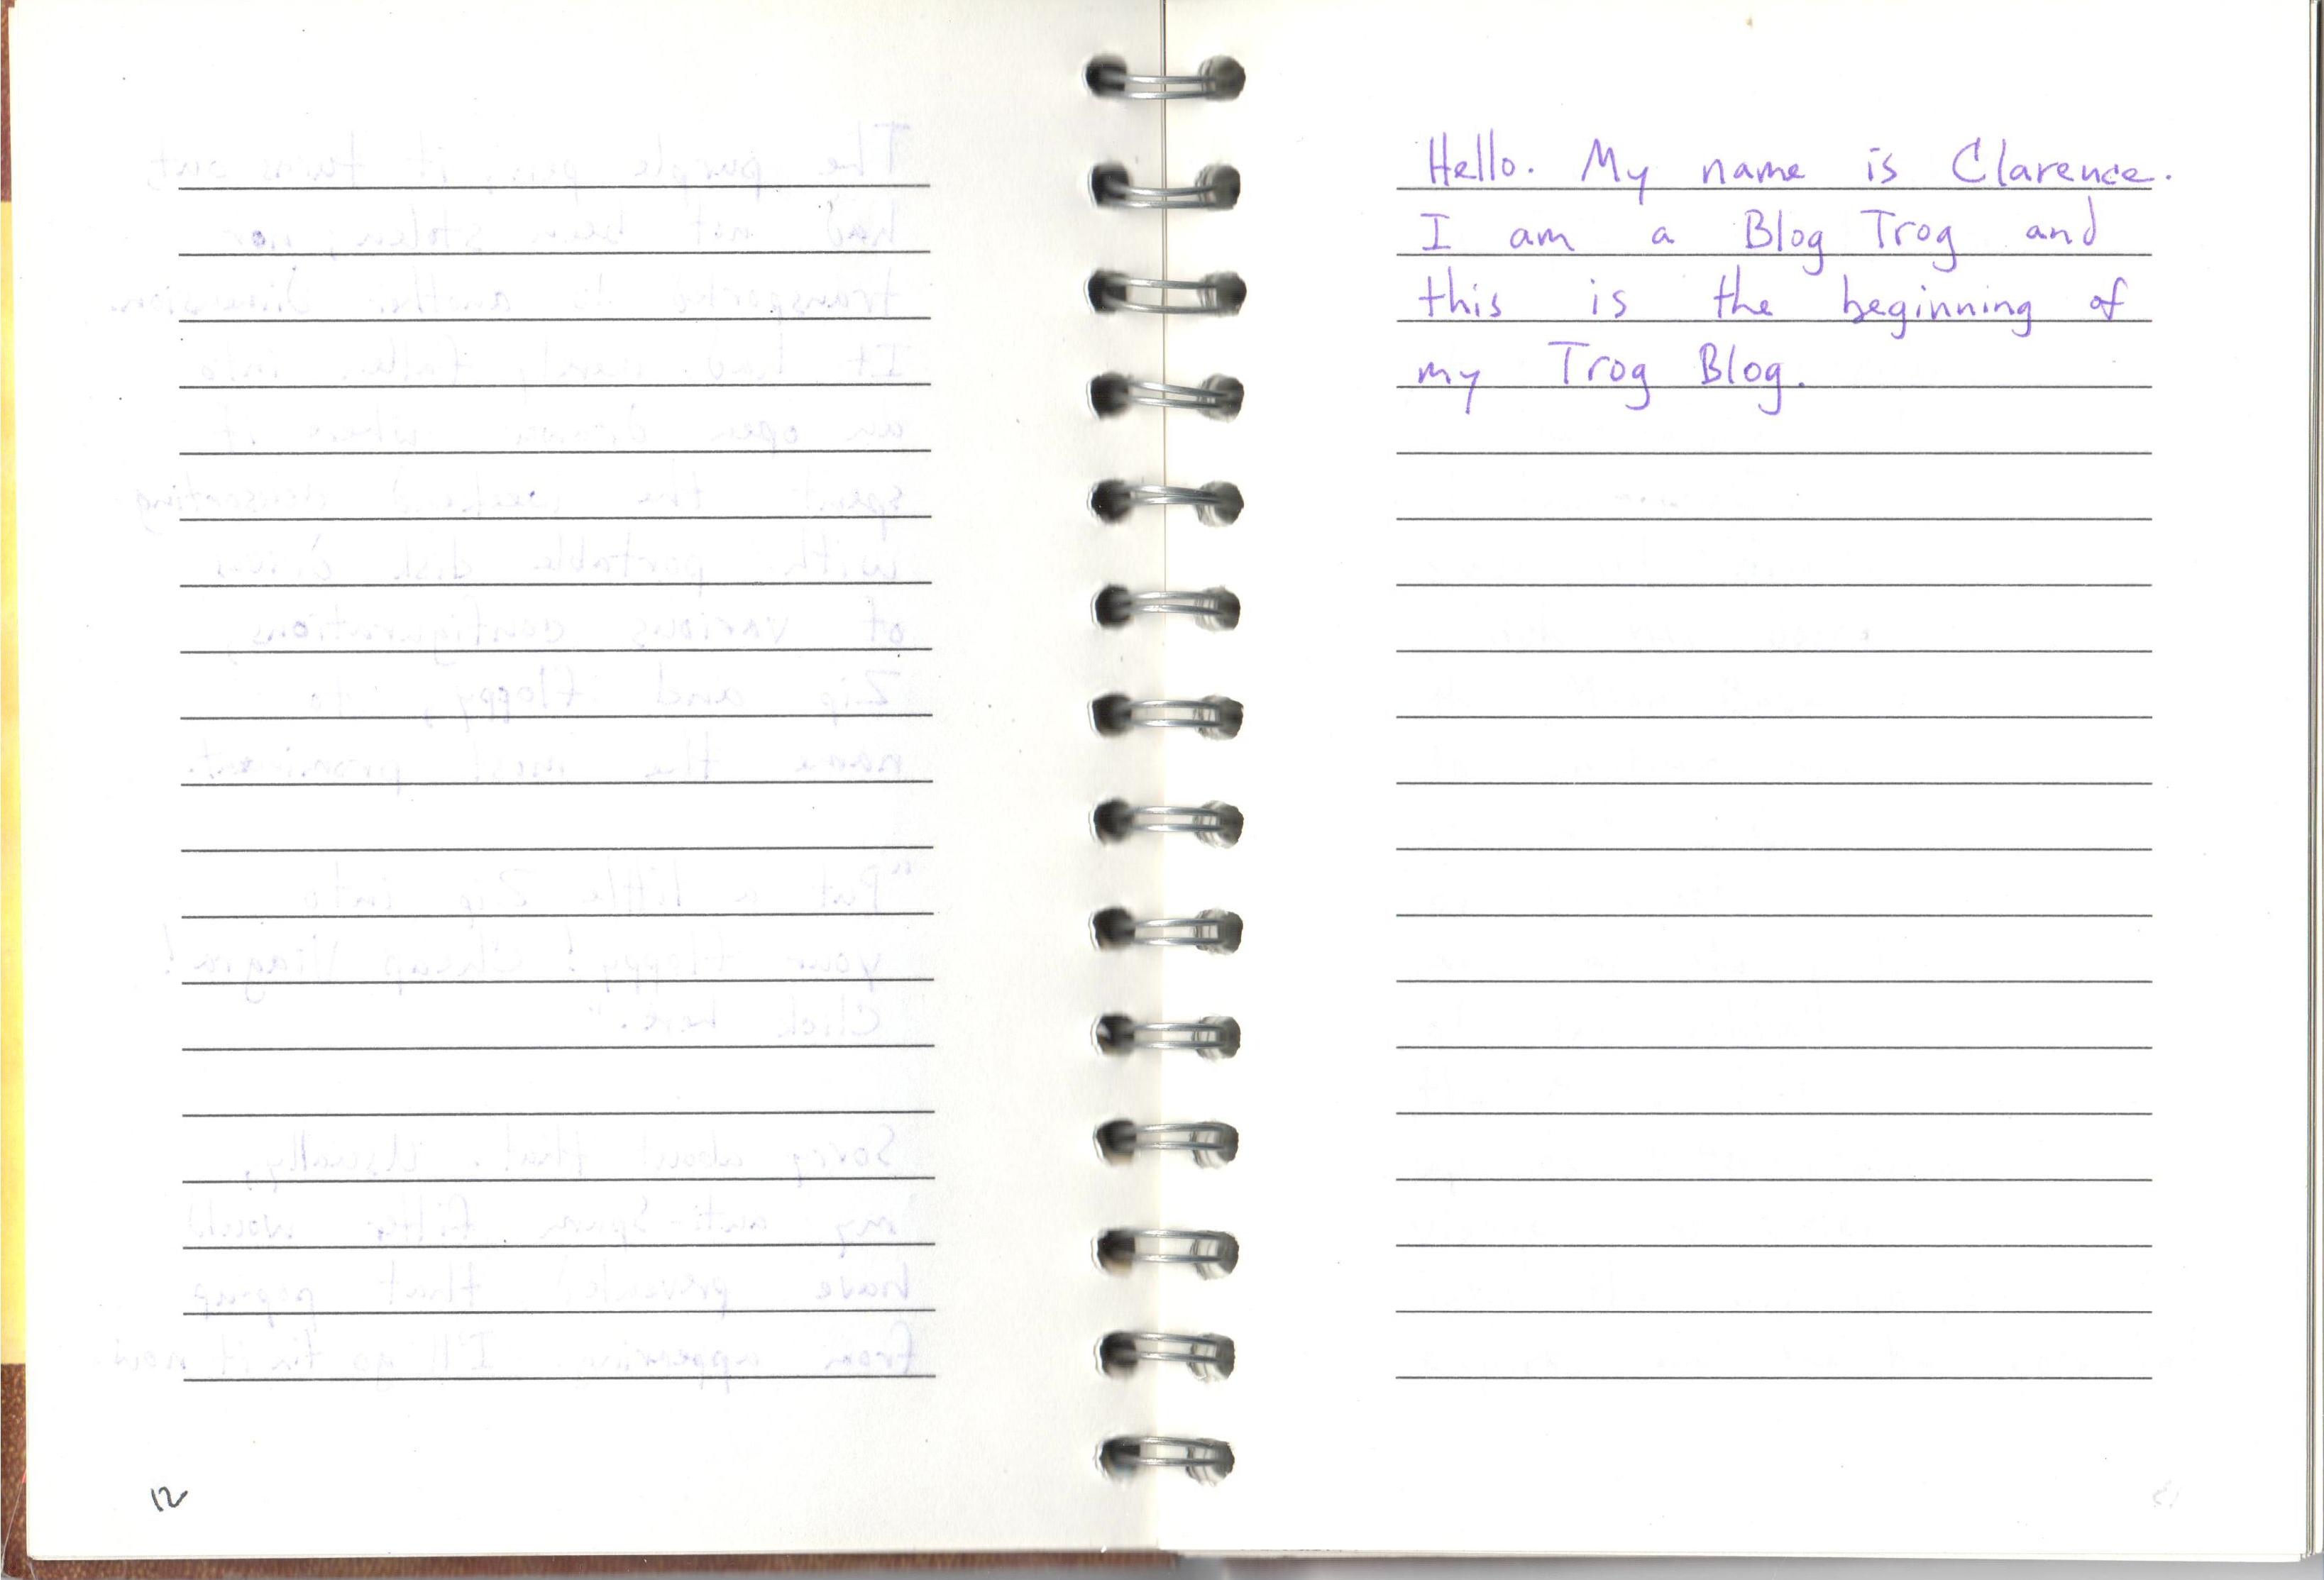 12
Hello. My name is Clarence.
I am a Blog Trog and
this is the beginning of
my Trog Blog.